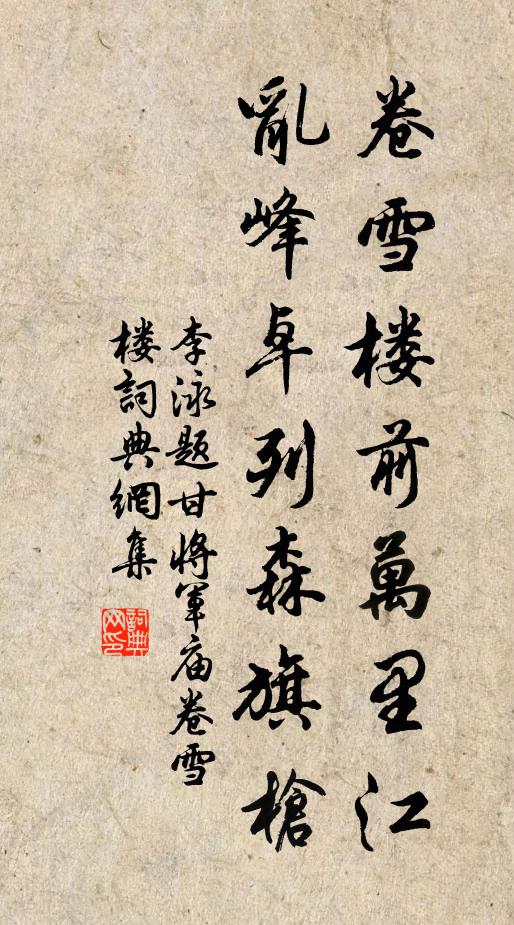 卷雪楼前萬里江
亂峰卓列森旗槍
李泳題甘將軍庙卷雪
楼詞典網集
詞典
网印